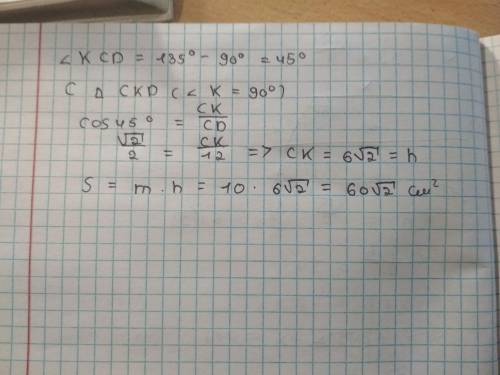 < KCD = 135° - 90° = 45°
C Δ CKD ( < K = 90°)
cos 45° = CK/CD
√2/2 = CK/12 => CK = 6√2 = h
S = m · h = 10 · 6√2 = 60√2 см²